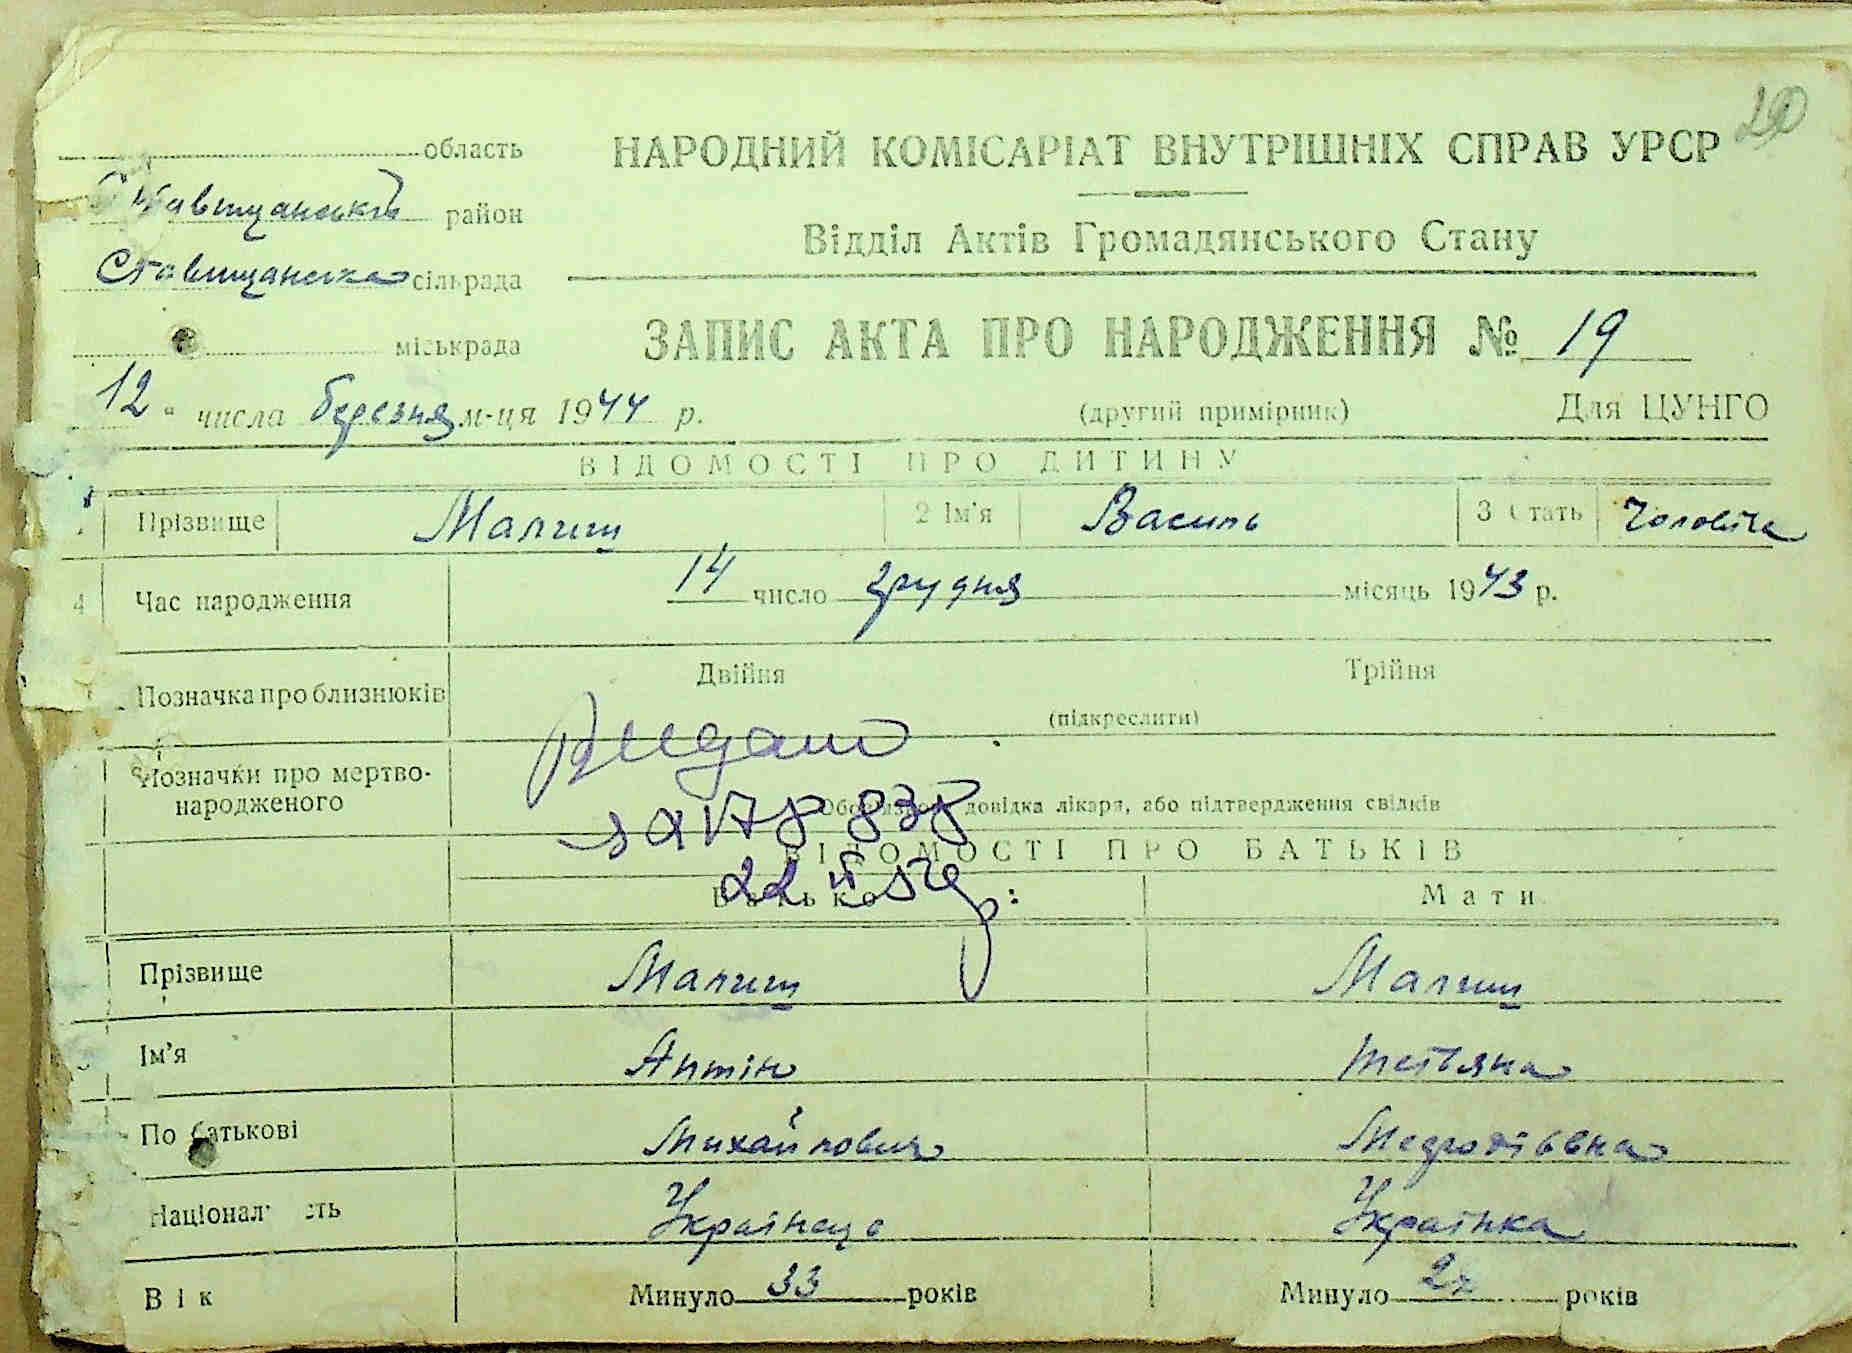 область
НАРОДНИЙ КОМІСАРІАТ ВНУТРІШНІХ СПРАВ УРСР
Ставищанський район
Відділ Актів Громадянського Стану
Ставищанська сільрада
міськрада
ЗАПИС АКТА ПРО НАРОДЖЕННЯ № 19
12 " числа березня м-ця 1944 р.
(другий примірник) Для ЦУНГО
ВІДОМОСТІ ПРО ДИТИНУ
Прізвище Малиш 2 Ім'я Василь 3 Стать Чоловіча
4 Час народження 14 число грудня місяць 1943 р.
Позначка про близнюків Двійня Трійня
(підкреслити)
Видано
Позначки про мертво-
народженого
довідка лікаря, або підтвердження свідків
ВІДОМОСТІ ПРО БАТЬКІВ
Батько Мати
Прізвище Малиш Малиш
Ім'я Антін Тетьяна
По батькові Михайлович
Національність Українець Українка
Вік Минуло 33 років Минуло років